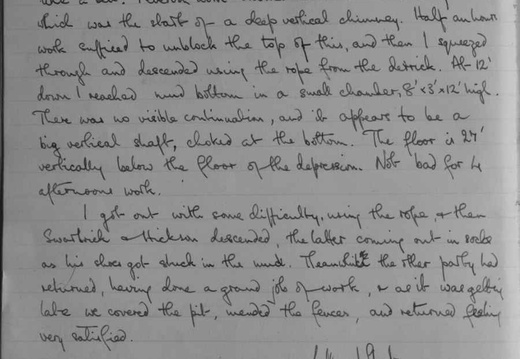 which was the start of a deep vertical chimney. Half an hours
work sufficed to unblock the top of this, and then I squeezed
through and descended using the rope from the derrick. At 12'
down I reached mud bottom in a small chamber, 8' x 3' x 12' high.
There was no visible continuation, and it appears to be a
big vertical shaft, choked at the bottom. The floor is 27'
vertically below the floor of the depression. Not bad for 4
afternoons work.
I got out with some difficulty, using the rope, & then
Swarbrick & Hickson descended, the latter coming out in socks
as his shoes got stuck in the mud. Meanwhile the other party had
returned, having done a grand job of work, & as it was getting
late we covered the pit, mended the fences, and returned feeling
very satisfied.